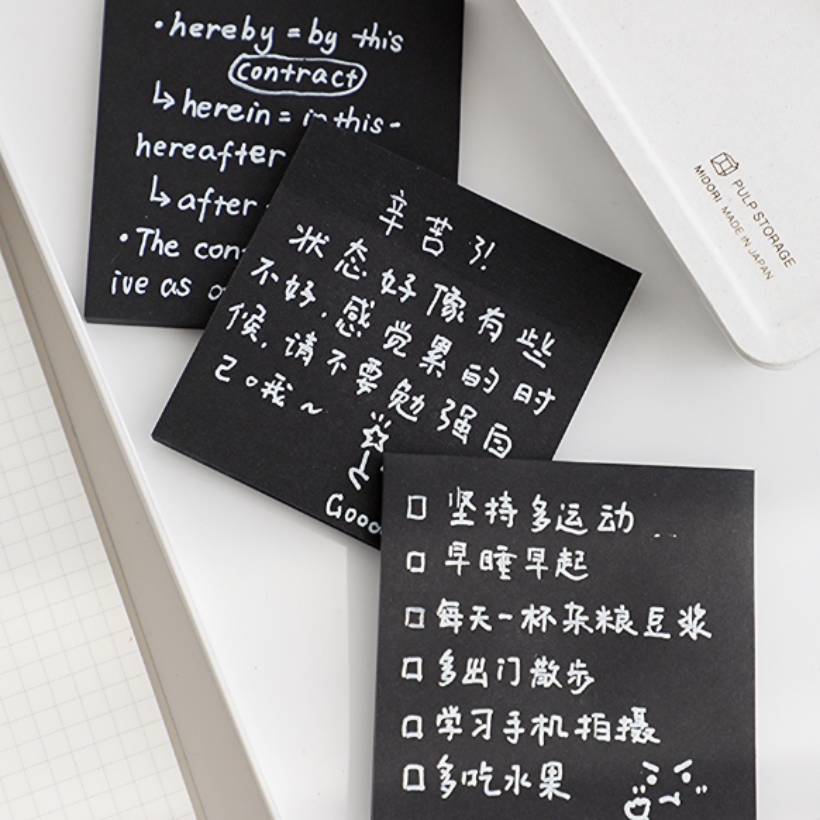 •hereby = by this
contract
↳ herein = in this-
hereafter
↳ after
•The con
ive as
辛苦了!
状态好像有些
不好,感觉累的时
候,请不要勉强自
己。哦~
Good
□ 坚持多运动
□ 早睡早起
□ 每天一杯杂粮豆浆
□ 多出门散步
□ 学习手机拍摄
□ 多吃水果
PULP STORAGE
MIDORI MADE IN JAPAN